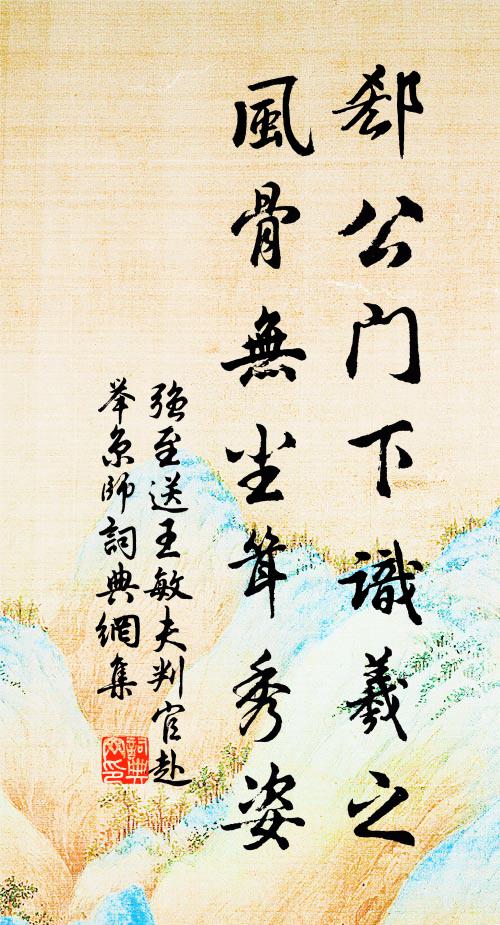 郄公门下識羲之
風骨無尘聳秀姿
强至送王敏夫判官赴
举京師詞典網集
詞典